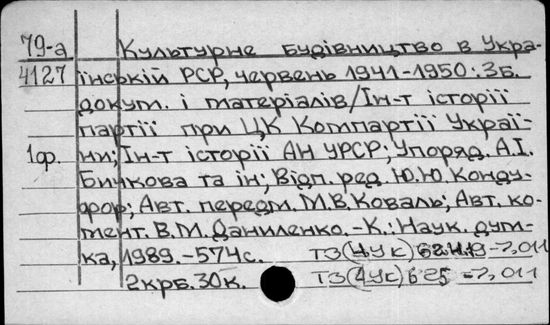 79-а Культурне будівництво в Укра-
4127 їнській РСР, червень 1941-1950: Зб.
докум. і матеріалів/Ін-т історії
партії при ЦК Компартії Украї-
1ф. ни; Ін-т історії АН УРСР; Упоряд. А.І.
Бичкова та ін; Відп. ред. Ю.Ю. Конду-
фор; Авт. передм. М.В. Коваль; Авт. ко-
мент. В.М. Даниленко. -К.: Наук. дум-
ка, 1989. -574с. ТЗ(4Ук)
2крб. 30к. ТЗ(4Ук)6